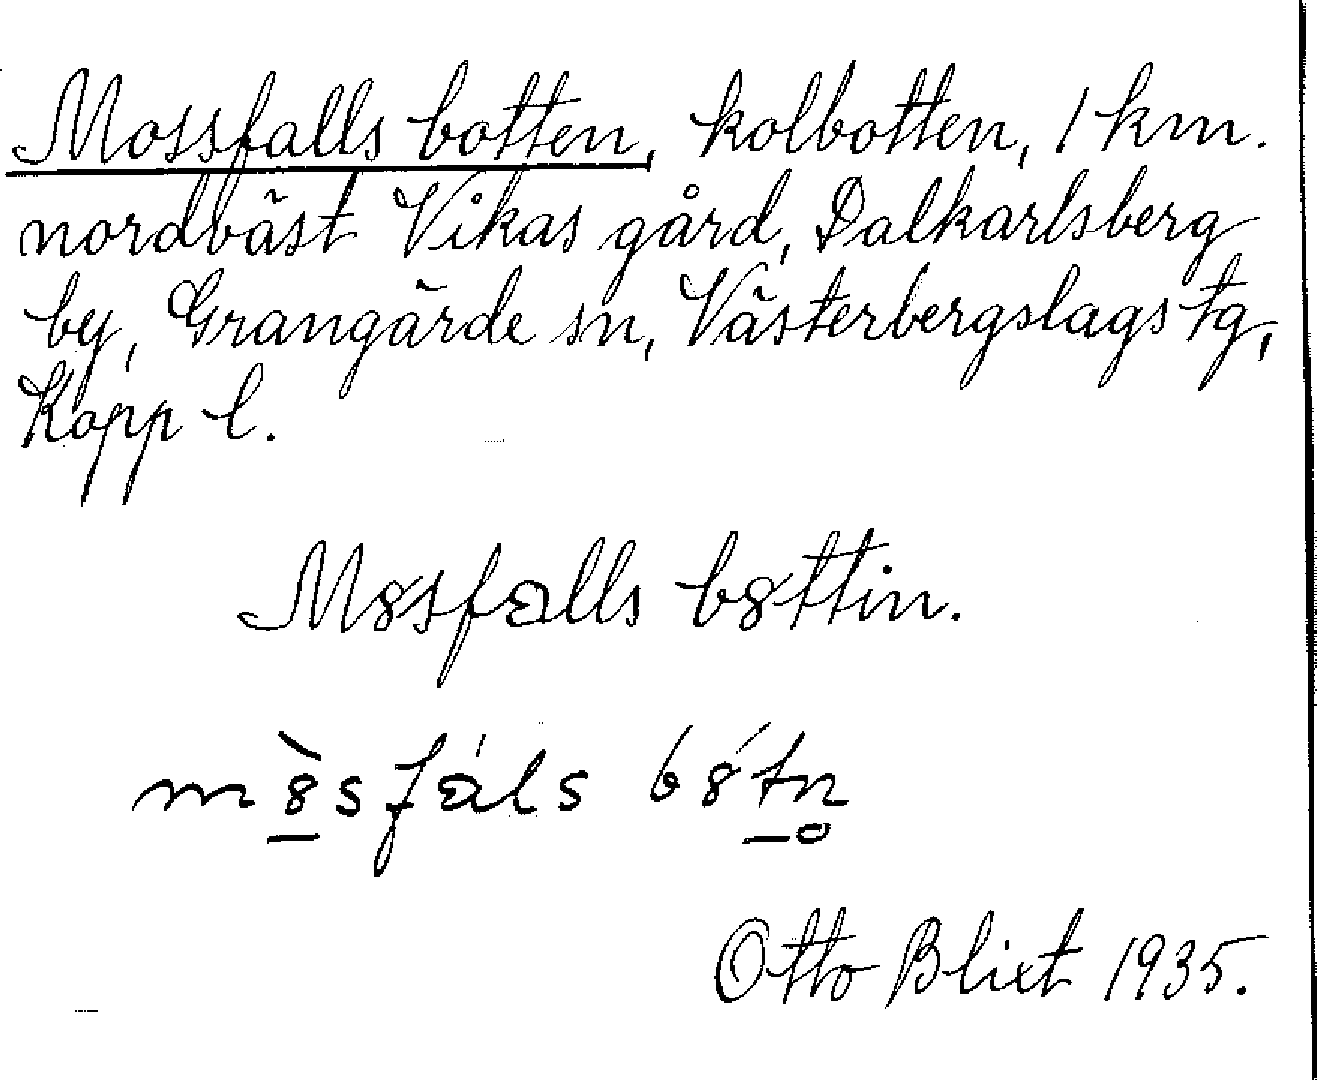 Mossfalls botten, kolbotten, 1 km.
nordväst Vikas gård, Dalkarlsberg
by, Grangärde sn, Västerbergslags tg,
Kopp l.
M8sfalls b8ttin.
m8̀sfáls b8́tn̥
Otto Blixt 1935.